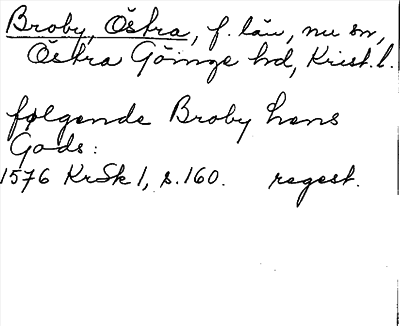 Broby, Östra, f. län, nu sn,
Östra Göinge hd, Krist. l.
følgende Broby Lens
Gods:
1576 KrSk 1, s. 160. regest.